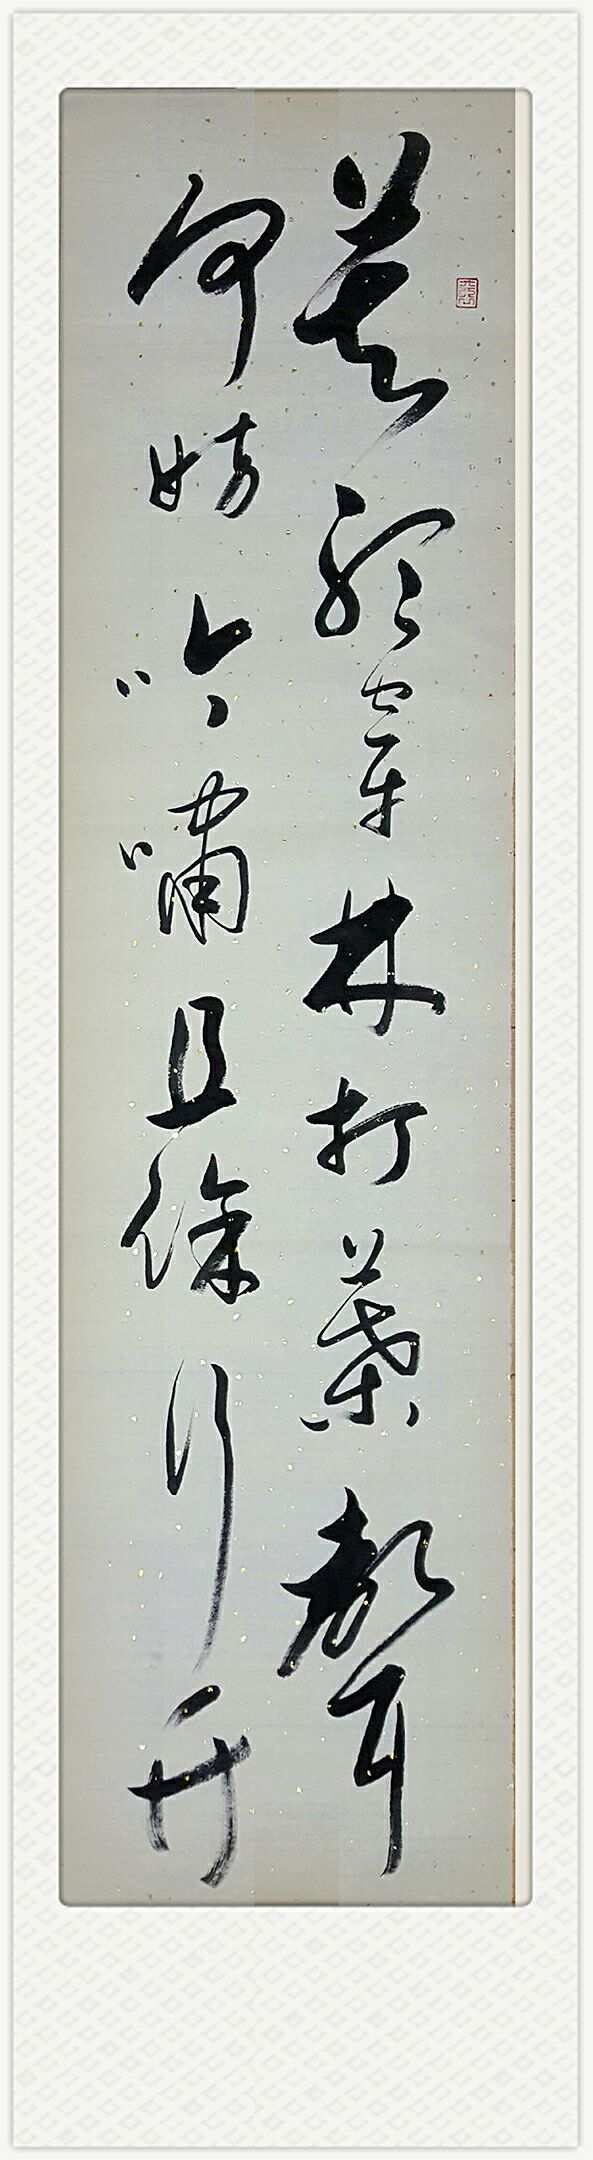 莫聽穿林打葉聲
何妨吟嘯且徐行竹